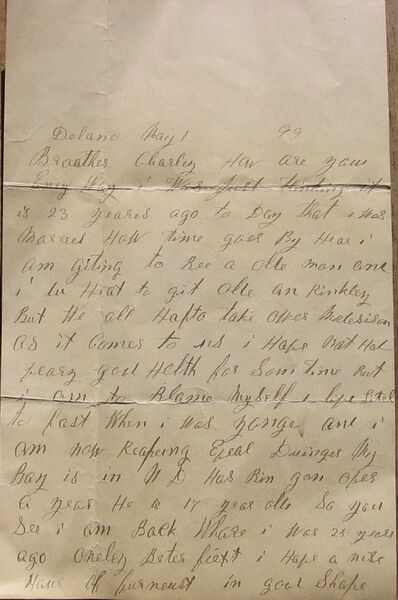 Delano May 1 99
Broather Charley How are you
Eney Way i Was just thinking it
is 23 yeares ago to Day that i was
Married How time goes By Hear i
am giting to Bee a olle man and
i to git olle an Rinkley
But We all Hafto take Ower
as it Comes to us i Hope
good Helth for Som time But
i am to Blame Myself i
to fast When i was yonge and i
am now Reapeing My
Boy is in N D Has Bin gon over
a year He is 17 year olle So you
See i am Back Whare i Was 23 years
ago Onley Beter i Have a nise
House in good Shape